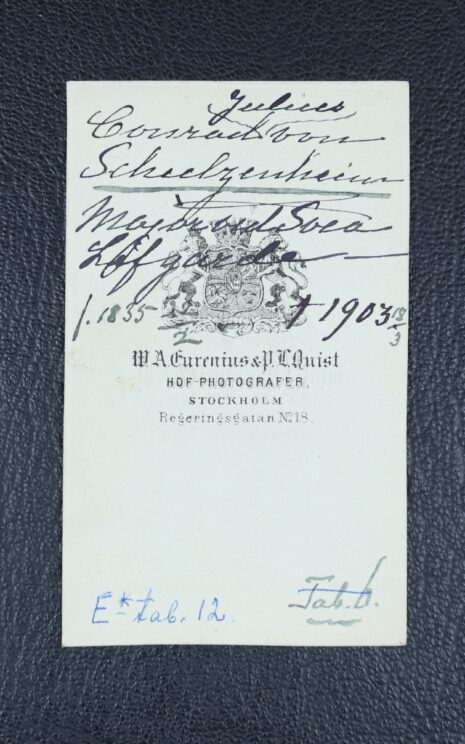 Julius
Conrad von
Scheelzenheim
Major vid Svea
Lifgarde
f. 1835 22/2 † 1903 18/3
W. A. Eurenius & P. L. Quist
HOF-PHOTOGRAFER,
STOCKHOLM
Regeringsgatan No 18.
E* tab. 12. Tab. 6.